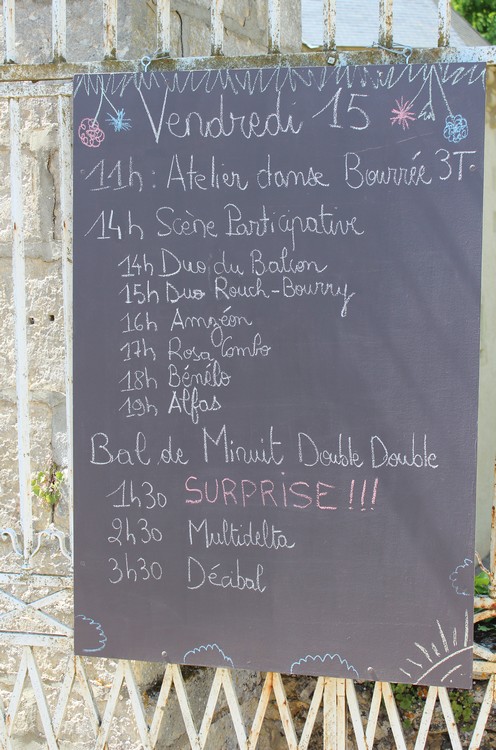 Vendredi 15
11h : Atelier danse Bourrée 3T
14h Scène Participative
14h Duo du Balion
15h Duo Rouch-Bourry
16h Amzéon
17h Rosa Combo
18h Bénélo
19h Alfas
Bal de Minuit Double Double
1h30 SURPRISE !!!
2h30 Multidelta
3h30 Décibal